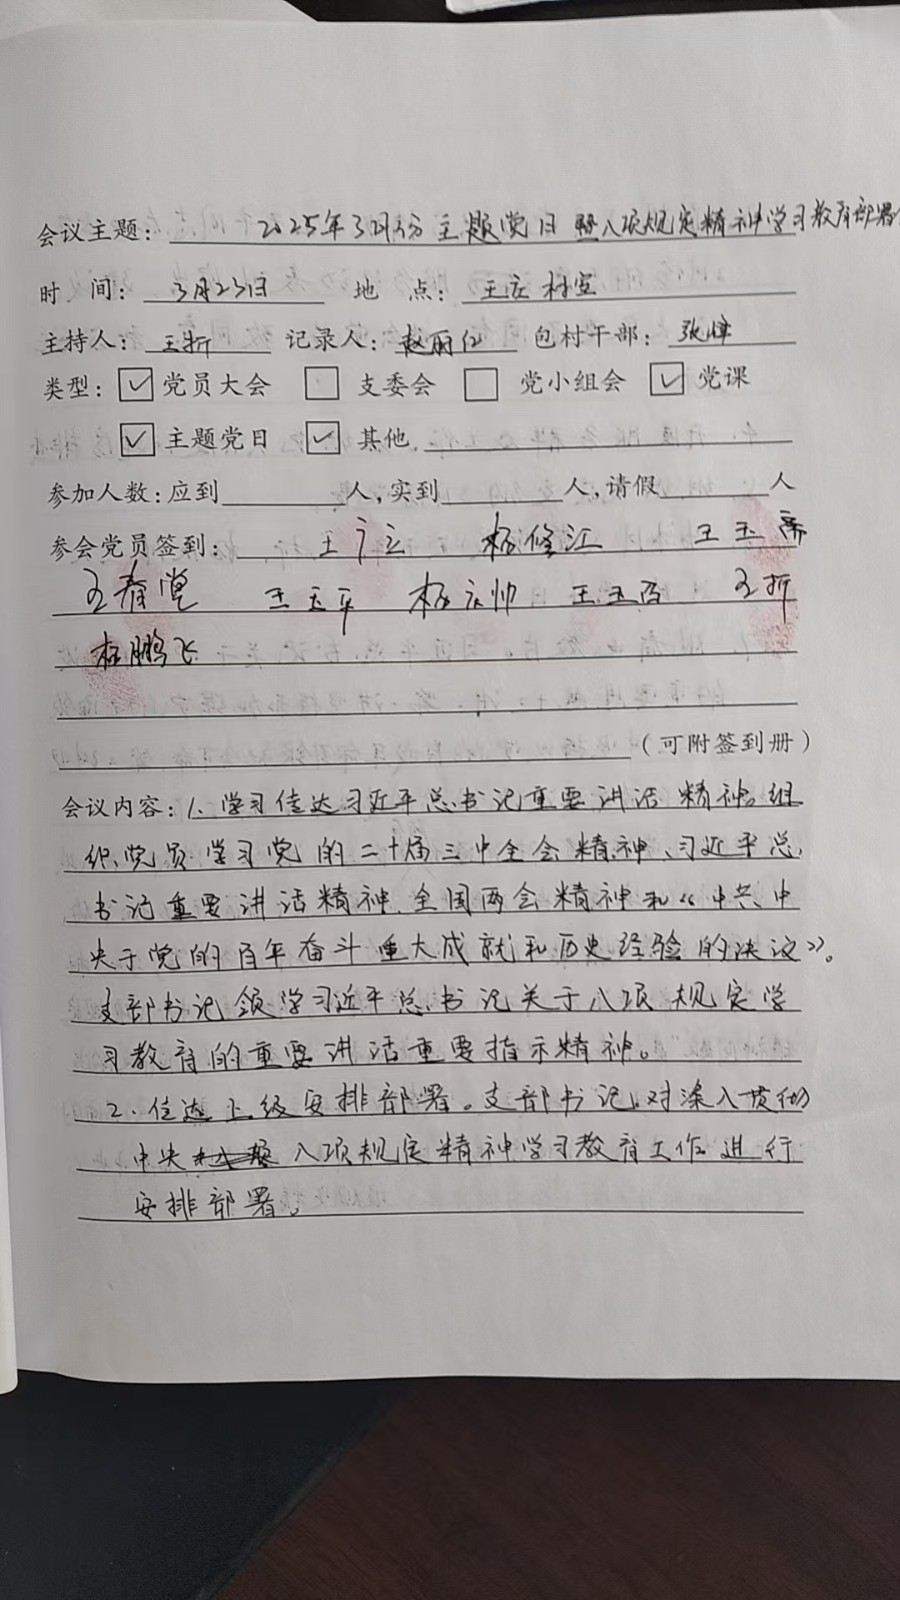 会议主题: 2025年3月份主题党日暨八项规定精神学习教育部署
时 间: 3月23日 地 点: 王庄村室
主持人: 王折 记录人: 赵丽红 包村干部: 张
类型: ☑ 党员大会 □ 支委会 □ 党小组会 ☑ 党课
☑ 主题党日 ☑ 其他
参加人数: 应到 人, 实到 人, 请假 人
参会党员签到: 王广立 杨修江 王玉
王春堂 王玉平 杨庆帅 王玉 王折
杨鹏飞
(可附签到册)
会议内容: 1. 学习传达习近平总书记重要讲话精神。组
织党员学习党的二十届三中全会精神、习近平总
书记重要讲话精神、全国两会精神和《中共中
央于党的百年奋斗重大成就和历史经验的决议》。
支部书记领学习近平总书记关于八项规定学
习教育的重要讲话重要指示精神。
2. 传达上级安排部署。支部书记对深入贯彻
中央八项规定精神学习教育工作进行
安排部署。